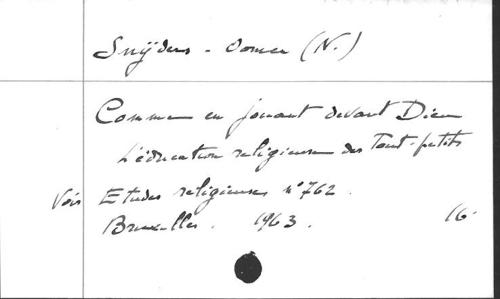 Snÿders - Oomen (N.)
Comme en jouant devant Dieu
L'éducation religieuse des Tout-petits
Voir Etudes religieuses n° 762.
Bruxelles. 1963. 16.